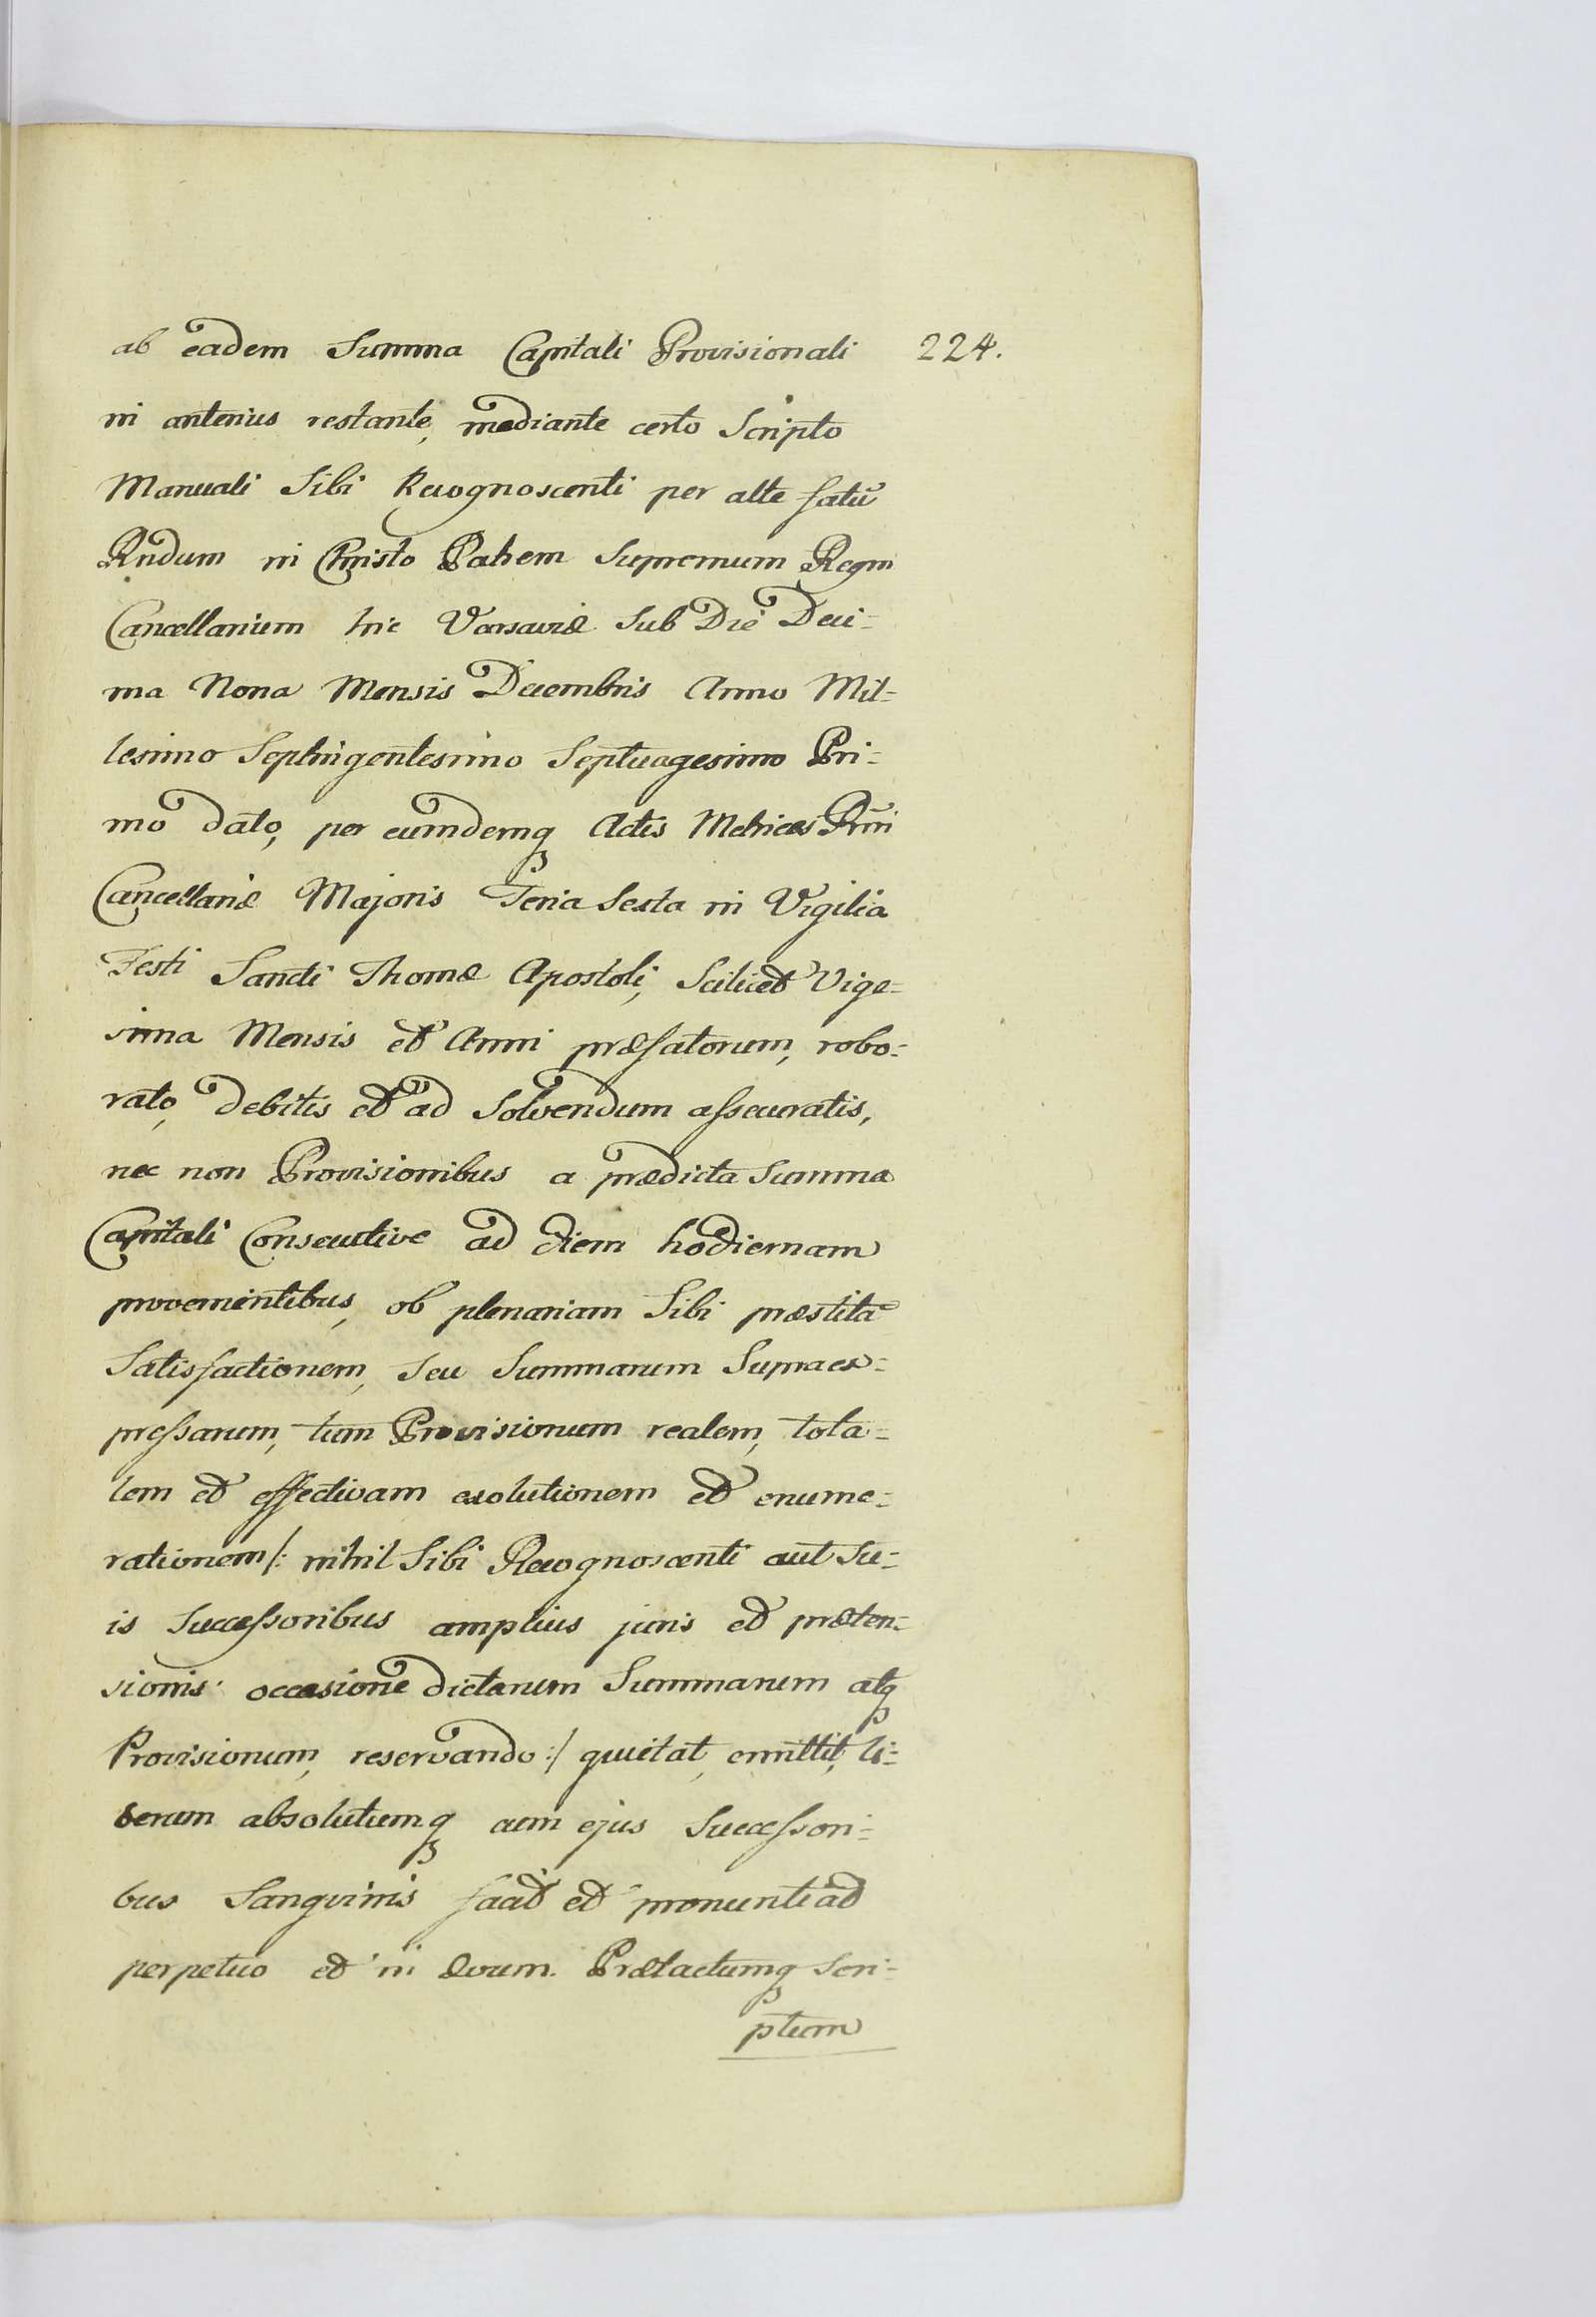 ab eadem Summa Capitali Provisionali 224.
in anterius restante, mediante certo Scripto
Manuali Sibi Recognoscenti per alte fatũ
Rndum in Christo Patrem Supremum Regni
Cancellarium hic Varsaviæ Sub Die Deci=
ma Nona Mensis Decembris Anno Mil=
lesimo Septingentesimo Septuagesimo Pri=
mo dato, per eumdemq Actis Metrices Rñi
Cancellariæ Majoris Feria Sexta in Vigilia
Festi Sancti Thomæ Apostoli, Scilicet Vige=
sima Mensis et Anni præfatorum, robo=
rato, debitis et ad Solvendum assecuratis,
nec non Provisionibus a prædicta Summa
Capitali Consecutive ad diem hodiernam
provenientibus, ob plenariam Sibi præstitã
Satisfactionem, Seu Summarum Supraex=
pressarum, tum Provisionum realem, tota=
lem et effectivam exolutionem et enume=
rationem /: nihil Sibi Recognoscenti aut Su=
is Successoribus amplius juris et præten=
sionis occasione dictarum Summarum atq
Provisionum, reservando :/ quietat, emittit, li=
berum absolutumq cum ejus Successori=
bus Sangvinis facit et pronuntiat
perpetuo et in ævum. Prætactumq Scri=
ptum